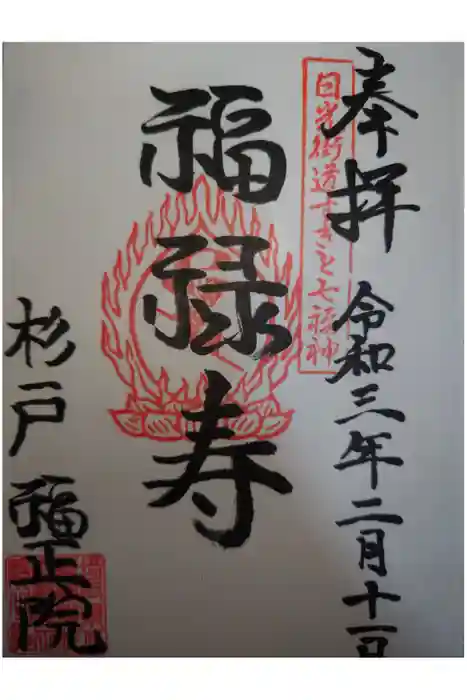 奉拝
令和三年二月十一日
日光街道すぎと七福神
福禄寿
杉戸
福正院